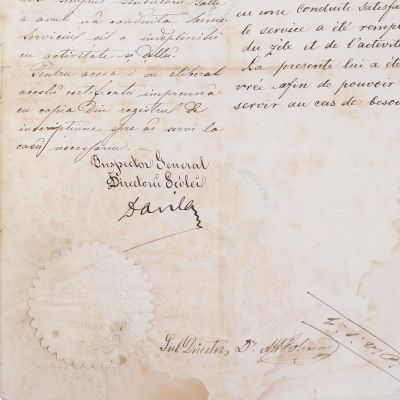 a avut uă conduita bună
serviciu si a indeplinit
cu activitate si dillu.
Pentru aceea i s'a eliberat
acestu certificatu impreună
cu copia din registru de
inscriptiune spre a'i servi la
casu necessariu.
Inspector General
Directoru Scólei
Davila
eu une conduite satisfa
le service a été remp
du zéle et de l'activité
La présente lui a été
vrée afin de pouvoir
servir au cas de beso
Sub Director, Dr.